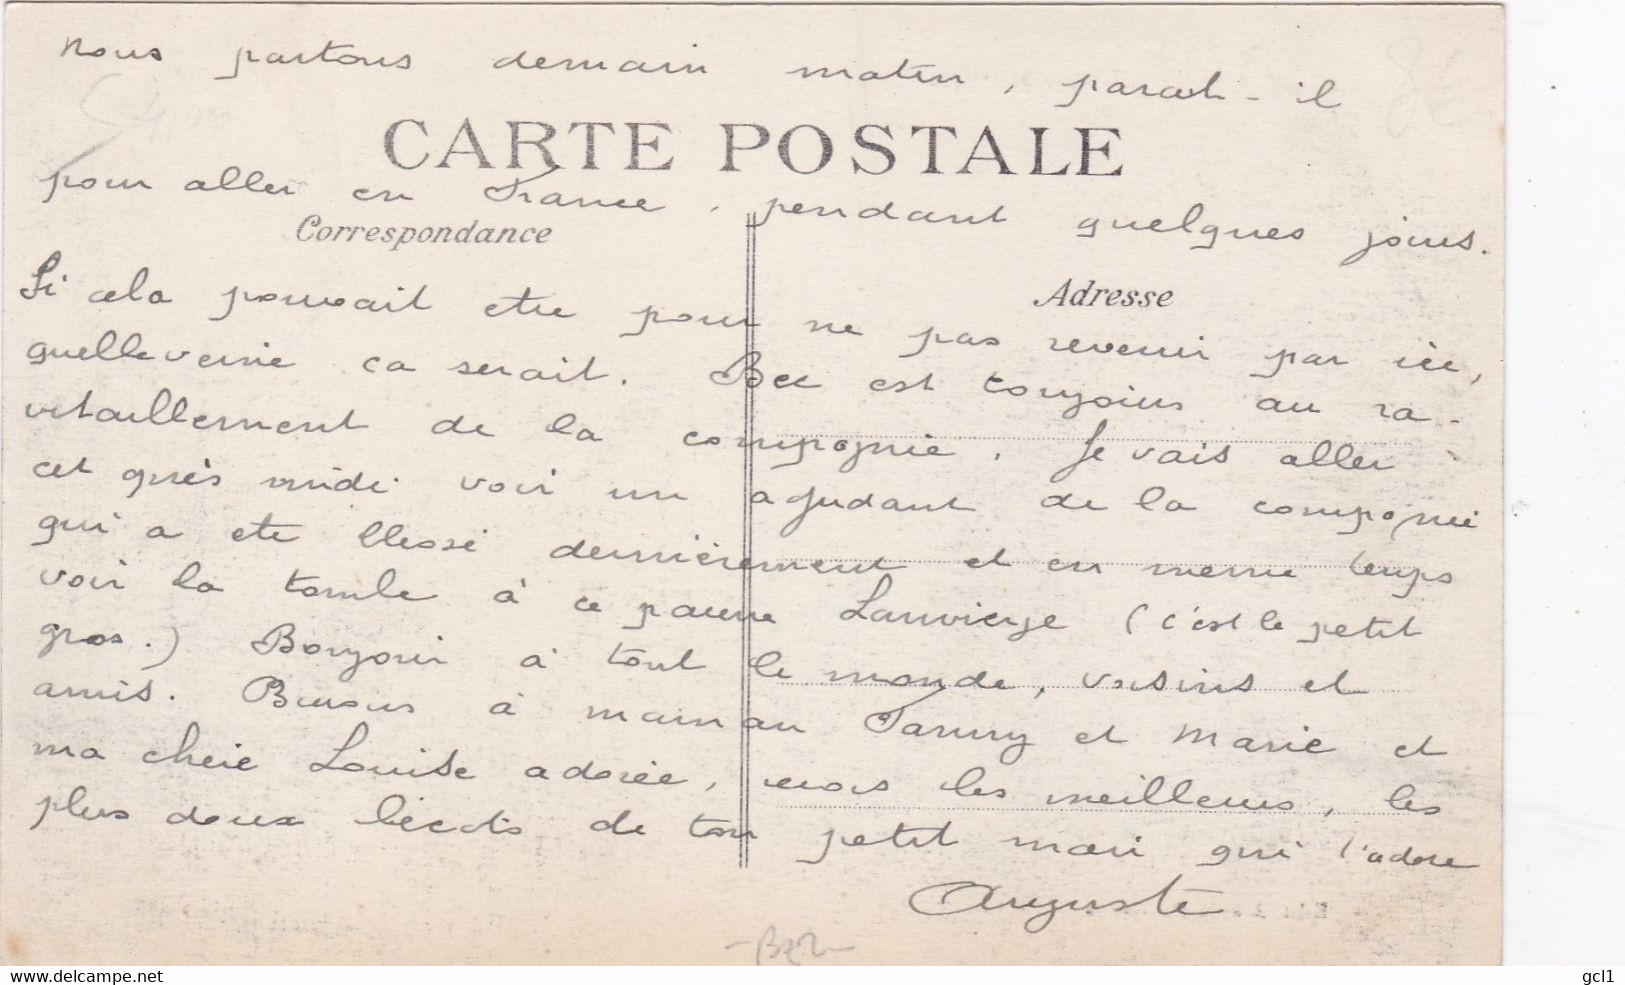 nous partons demain matin, parait-il
CARTE POSTALE
pour aller en France, pendant quelques jours.
Correspondance
Adresse
Si cela pouvait etre pour ne pas revenir par ici,
quelle veine ca serait. Bec est toujours au ra-
vitaillement de la compagnie. Je vais aller
cet après midi voir un adjudant de la compagnie
qui a ete blessé dernièrement et en meme temps
voir la tombe à ce pauvre Lanvierge (c'est le petit
gros.) Bonjour à tout le monde, voisins et
amis. Baisers à maman Fanny et Marie et
ma chere Louise adorée, recois les meilleurs, les
plus doux bécots de ton petit mari qui t'adore
Auguste
www.delcampe.net
gcl1